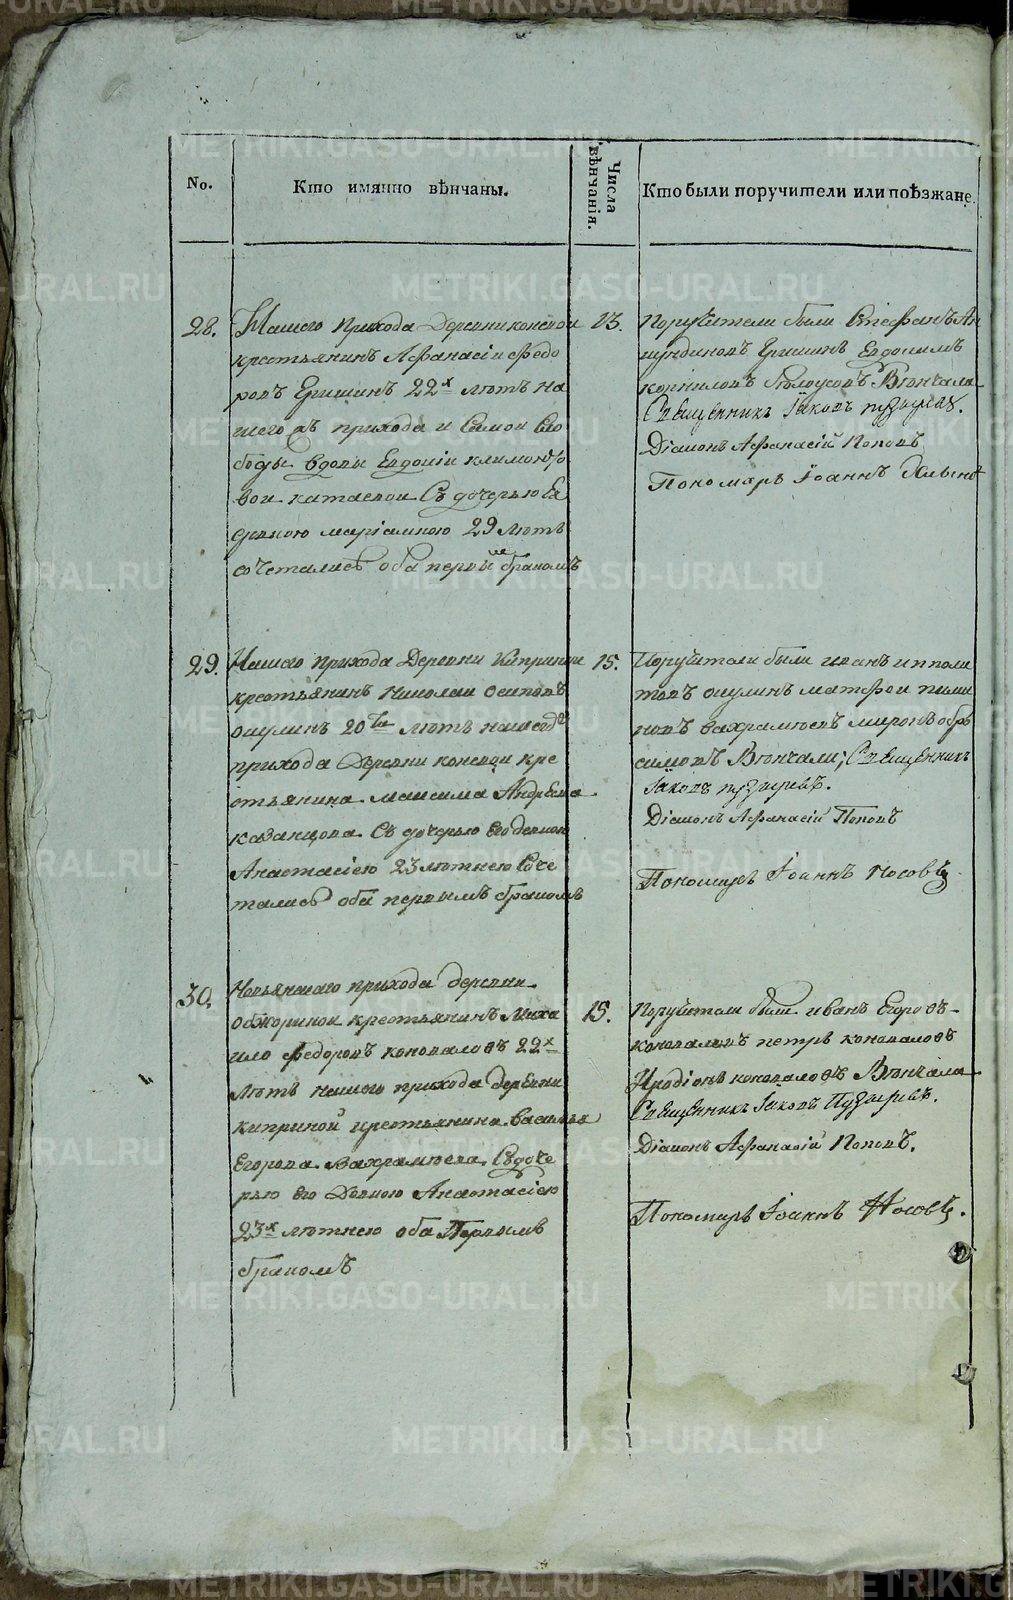 No.
Кто имянно вѣнчаны.
Числа
вѣнчанія.
Кто были поручители или поѣзжане.
28. Нашего прихода деревни коневои
крестьянинъ Афанасіи Федо
ровъ Еришинъ 22х лѣтъ на
шего жъ прихода и самои сло
боды вдовы Евдокіи климонто
вои катаевои съ дочерью Ея
девкою маріамною 29 лѣтъ
сочетались оба первымъ бракомъ
13.
Поручители были Стефанъ
Еришинъ Евдокимъ
корниловъ Бѣлоусовъ Вѣнчали
Священникъ Іаковъ пузыревъ.
Діаконъ Афанасій Поповъ
Пономарь Іоаннъ
29. Нашего прихода Деревни Киприной
крестьянинъ Николаи Осиповъ
ошулинъ 20ти лѣтъ нашегожъ
прихода Деревни коневои кре
стьянина максима Андреева
казанцова Съ дочерью его девкою
Анастасіею 23 лѣтнею Соче
тались оба первымъ бракомъ
15.
Поручители были иванъ иполи
товъ ошулинъ матфеи
новъ вахрамѣевъ миронъ
симовъ Вѣнчали; Священникъ
Іаковъ пузыревъ.
Діаконъ Афанасій Поповъ
Пономарь Іоаннъ Носовъ
30. Невьянскаго прихода деревни
обжориной крестьянинъ Миха
ило Федоровъ коноваловъ 22х
лѣтъ нашего прихода деревни
киприной крестьянина василья
Егорова Вахрамѣева Съ доче
рью его Девкою Анастасіею
23х лѣтнею оба Первымъ
бракомъ
15.
Поручители были иванъ Егоровъ
коноваловъ петръ коноваловъ
Иродіонъ коноваловъ Вѣнчали
Священникъ Іаковъ Пузыревъ.
Діаконъ Афанасій Поповъ.
Пономарь Іоаннъ Носовъ.
METRIKI.GASO-URAL.RU